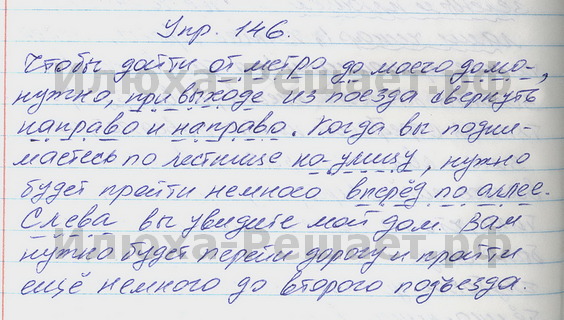 Упр. 146.
Чтобы дойти от метро до моего дома,
нужно, при выходе из поезда свернуть
направо и направо. Когда вы подни-
маетесь по лестнице на улицу, нужно
будет пройти немного вперёд по аллее.
Слева вы увидите мой дом. Вам
нужно будет перейи дорогу и пройти
ещё немного до второго подъезда.
Илюха-Решает.рф
Илюха-Решает.рф